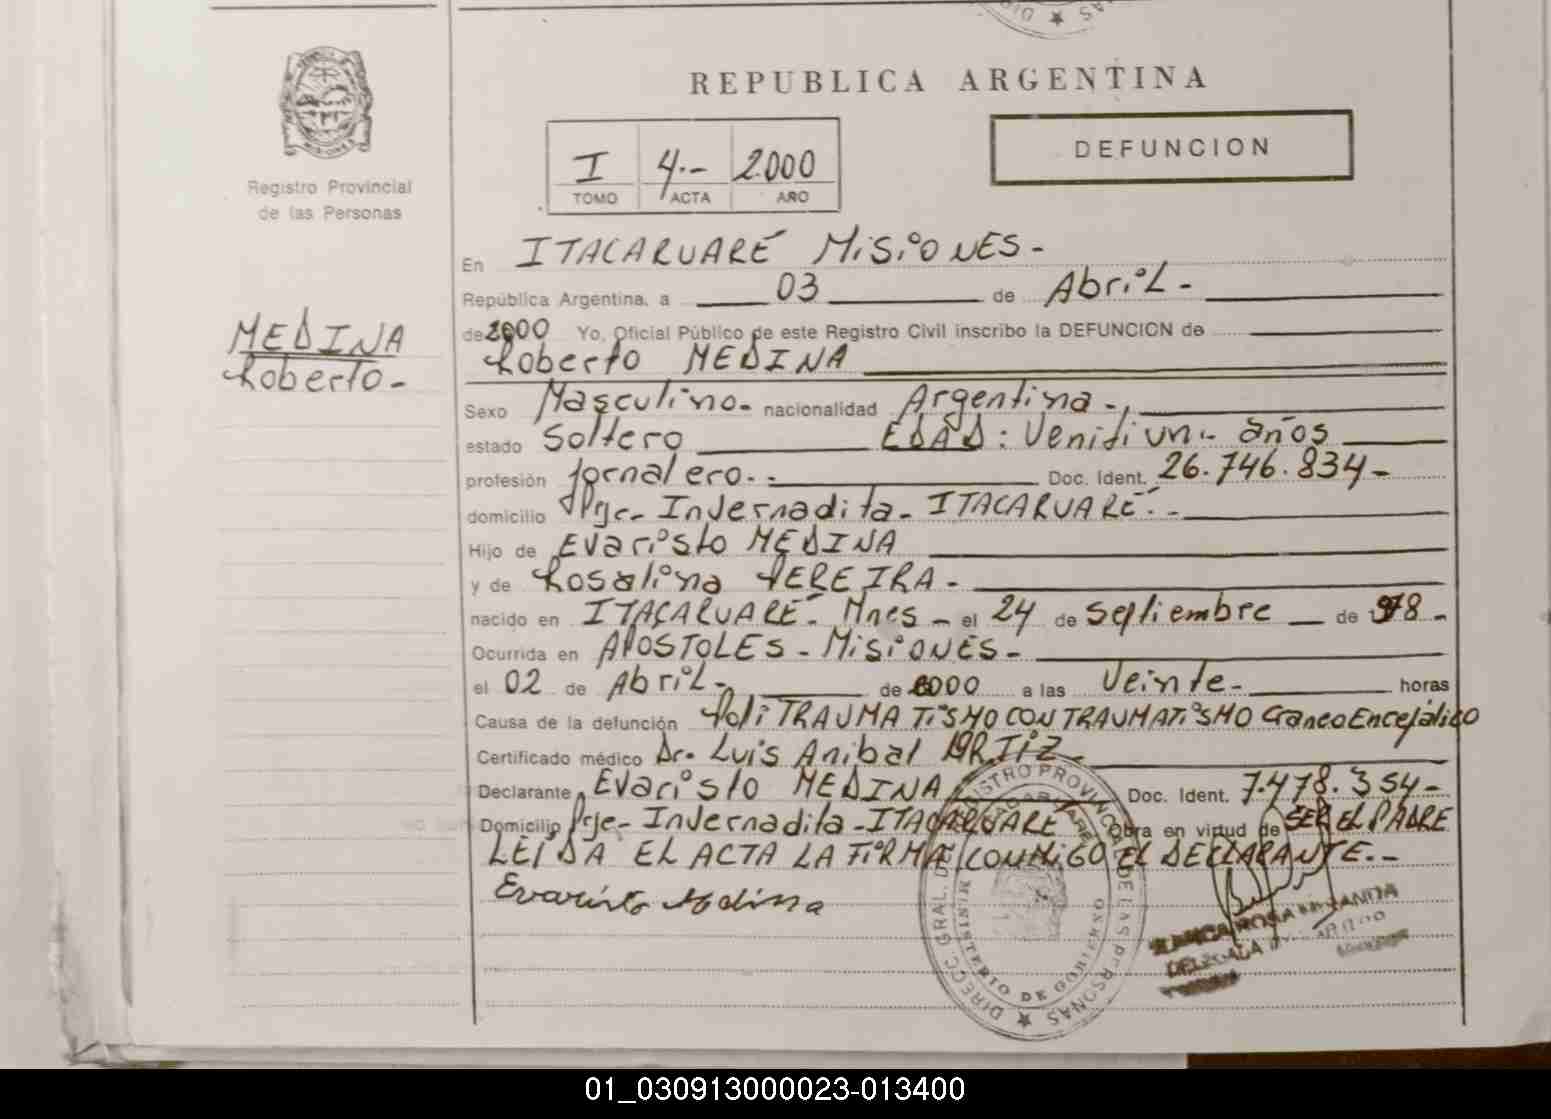 REPUBLICA ARGENTINA
DEFUNCION
I 4.- 2.000
TOMO ACTA AÑO
Registro Provincial
de las Personas
MEDINA
Roberto-
En ITACARUARÉ MISIONES-
República Argentina, a 03 de Abril-
de 2000 Yo, Oficial Público de este Registro Civil inscribo la DEFUNCION de
Roberto MEDINA
Sexo Masculino- nacionalidad Argentina-,
estado Soltero EDAD: Ventiun.- años
profesión Jornalero.- Doc. Ident. 26.746.834-
domicilio Prje- Invernadita- ITACARUARÉ.-
Hijo de Evaristo MEDINA
y de Rosalina PEREIRA-
nacido en ITACARUARÉ. Mnes- el 24 de septiembre de 1978-
Ocurrida en APOSTOLES- MISIONES-
el 02 de Abril- de 2000 a las Veinte- horas
Causa de la defunción Poli TRAUMATISMO CON TRAUMATISMO Craneo Encefálico
Certificado médico Dr. Luis Anibal ORTIZ-
Declarante Evaristo MEDINA Doc. Ident. 7.478.354-
Domicilio Prje- Invernadita- ITACARUARÉ Obra en virtud de SER EL PADRE
LEIDA EL ACTA LA FIRMA CONMIGO EL DECLARANTE.-
Evaristo Medina
DIRECC. GRAL. DE REGISTRO PROVINCIAL DE LAS PERSONAS
MINISTERIO DE GOBIERNO
ROSA MIRANDA
DELEGADA
01_030913000023-013400